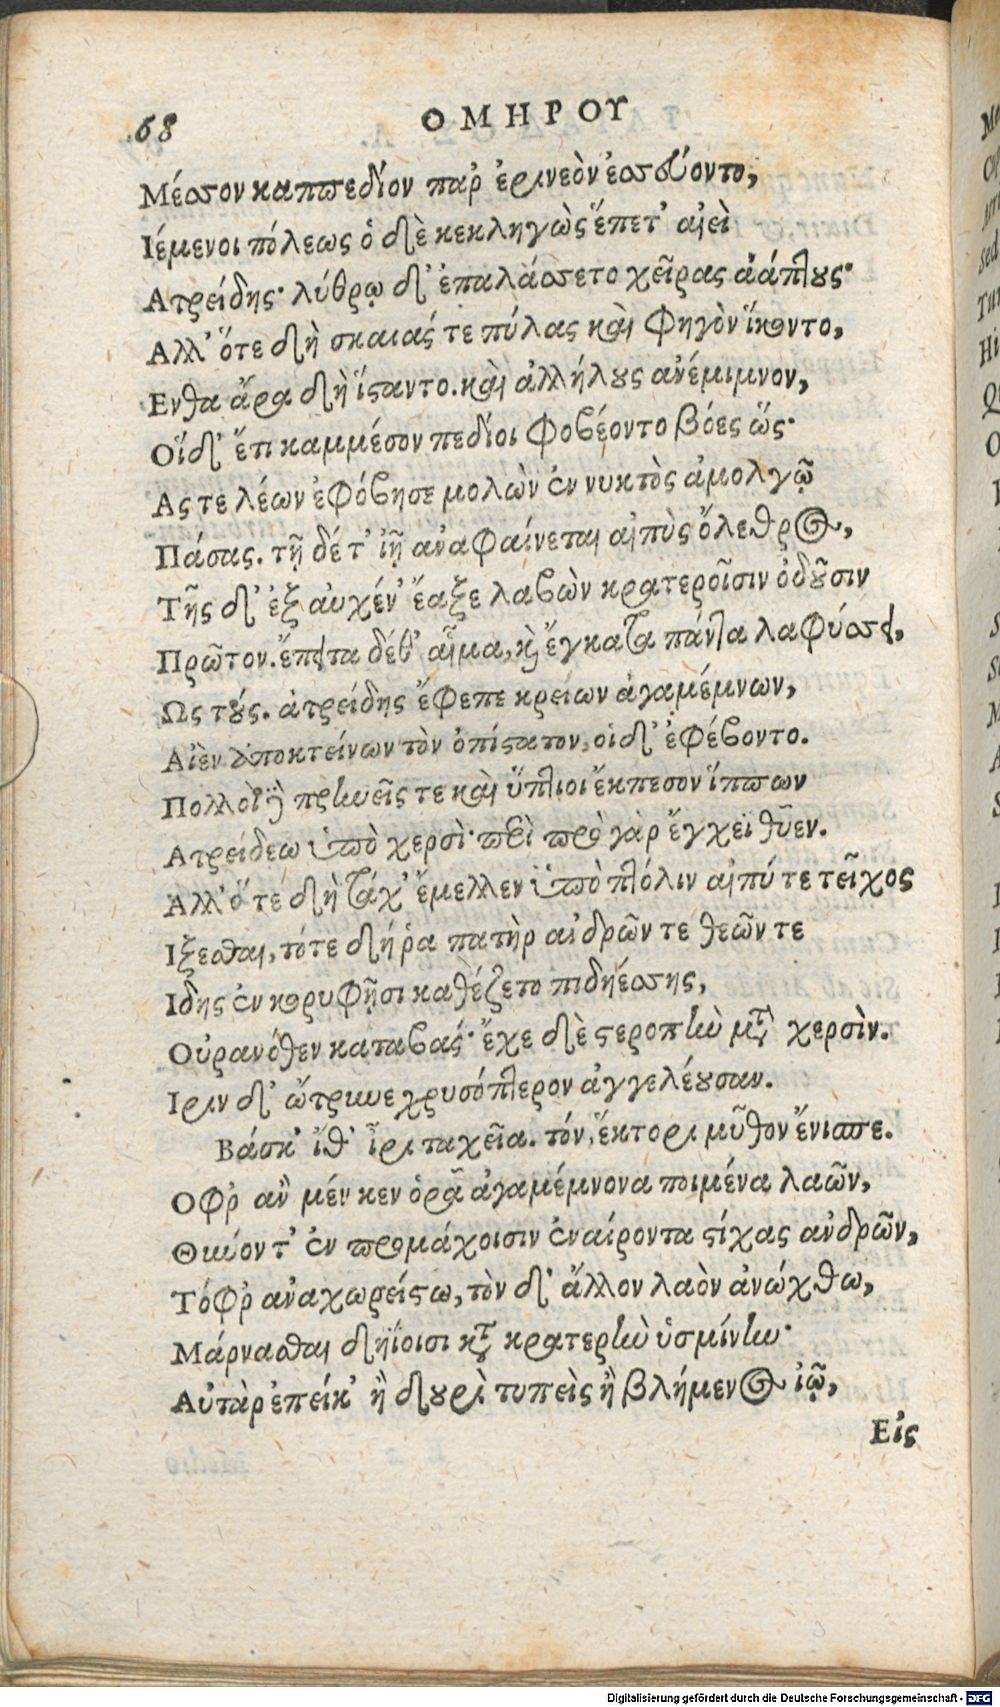 68 ΟΜΗΡΟΥ
Μέσσον καππεδίον παρ' ἐρινεὸν ἐσσεύοντο,
Ιέμενοι πόλεως ὁ δὲ κεκληγὼς ἕπετ' αἰεὶ
Ατρείδης· λύθρῳ δ' ἐπαλάσσετο χεῖρας ἀάπτους·
Αλλ' ὅτε δὴ σκαιάς τε πύλας καὶ Φηγὸν ἵκοντο,
Ενθα ἄρα δὴ ἵσταντο. καὶ ἀλλήλους ἀνέμιμνον,
Οἵ δ' ἔτι καμμέσον πεδίοι φοβέοντο βόες ὥς·
Ας τε λέων ἐφόβησε μολὼν ἐν νυκτὸς ἀμολγῷ
Πάσας. τῇ δέ τ' ἰῇ ἀναφαίνεται αἰπὺς ὄλεθρος,
Τῆς δ' ἐξ αὐχέν' ἔαξε λαβὼν κρατεροῖσιν ὀδοῦσιν
Πρῶτον. ἔπειτα δέ θ' αἷμα, καὶ ἔγκατα πάντα λαφύσσει,
Ως τούς. ἀτρείδης ἔφεπε κρείων ἀγαμέμνων,
Αἰὲν ἀποκτείνων τὸν ὀπίστατον, οἱ δ' ἐφέβοντο.
Πολλοὶ δὲ πρηνεῖς τε καὶ ὕπτιοι ἔκπεσον ἵππων
Ατρείδεω ὑπὸ χερσὶ· περὶ πρὸ γὰρ ἔγχεϊ θῦεν.
Αλλ' ὅτε δὴ τάχ' ἔμελλεν ὑπὸ πτόλιν αἰπύ τε τεῖχος
Ιξεσθαι, τότε δή ῥα πατὴρ ἀνδρῶν τε θεῶν τε
Ιδης ἐν κορυφῇσι καθέζετο πιδηέσσης,
Οὐρανόθεν καταβάς· ἔχε δὲ στεροπὴν μετὰ χερσὶν.
Ιριν δ' ὤτρυνε χρυσόπτερον ἀγγελέουσαν.
Βάσκ' ἴθ' ἶρι ταχεῖα. τόν, ἕκτορι μῦθον ἔνισπε.
Οφρ' ἂν μέν κεν ὁρᾷ ἀγαμέμνονα ποιμένα λαῶν,
Θύνοντ' ἐν προμάχοισιν ἐναίροντα στίχας ἀνδρῶν,
Τόφρ' ἀναχωρείτω, τὸν δ' ἄλλον λαὸν ἀνώχθω,
Μάρνασθαι δηΐοισι κατὰ κρατερὴν ὑσμίνην·
Αὐτὰρ ἐπείκ' ἢ δουρὶ τυπεὶς ἢ βλήμενος ἰῷ,
Εἰς
Digitalisierung gefördert durch die Deutsche Forschungsgemeinschaft - DFG